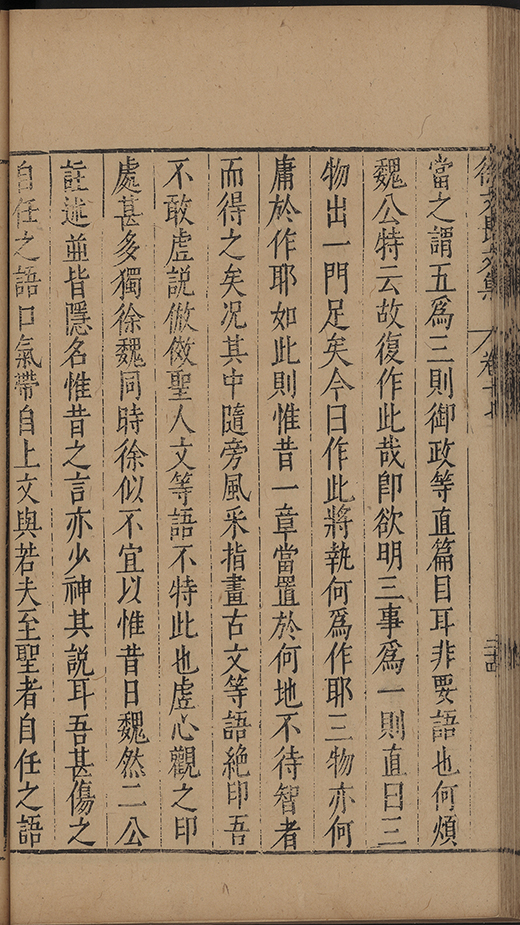 徐文長文集 卷十七 二十四
當之謂五爲三則御政等直篇目耳非要語也何煩
魏公特云故復作此哉卽欲明三事爲一則直曰三
物出一門足矣今曰作此將執何爲作耶三物亦何
庸於作耶如此則惟昔一章當置於何地不待智者
而得之矣况其中隨旁風采指畫古文等語絶印吾
不敢虛説倣傚聖人文等語不特此也虛心觀之印
處甚多獨徐魏同時徐似不宜以惟昔日魏然二公
註述並皆隱名惟昔之言亦少神其説耳吾甚傷之
自任之語口氣帶自上文與若夫至聖者自任之語